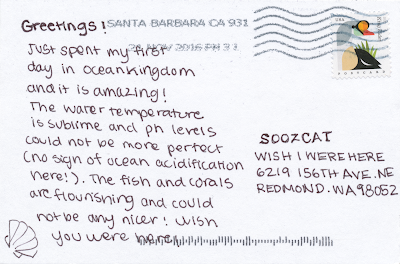 Greetings!
SANTA BARBARA CA 931
28 NOV 2016 PM 3 L
Just spent my first
day in oceankingdom
and it is amazing!
The water temperature
is sublime and ph levels
could not be more perfect
(no sign of ocean acidification
here!). The fish and corals
are flourishing and could
not be any nicer! Wish
you were here
USA
SOOZCAT
WISH I WERE HERE
6219 156TH AVE. NE
REDMOND. WA 98052